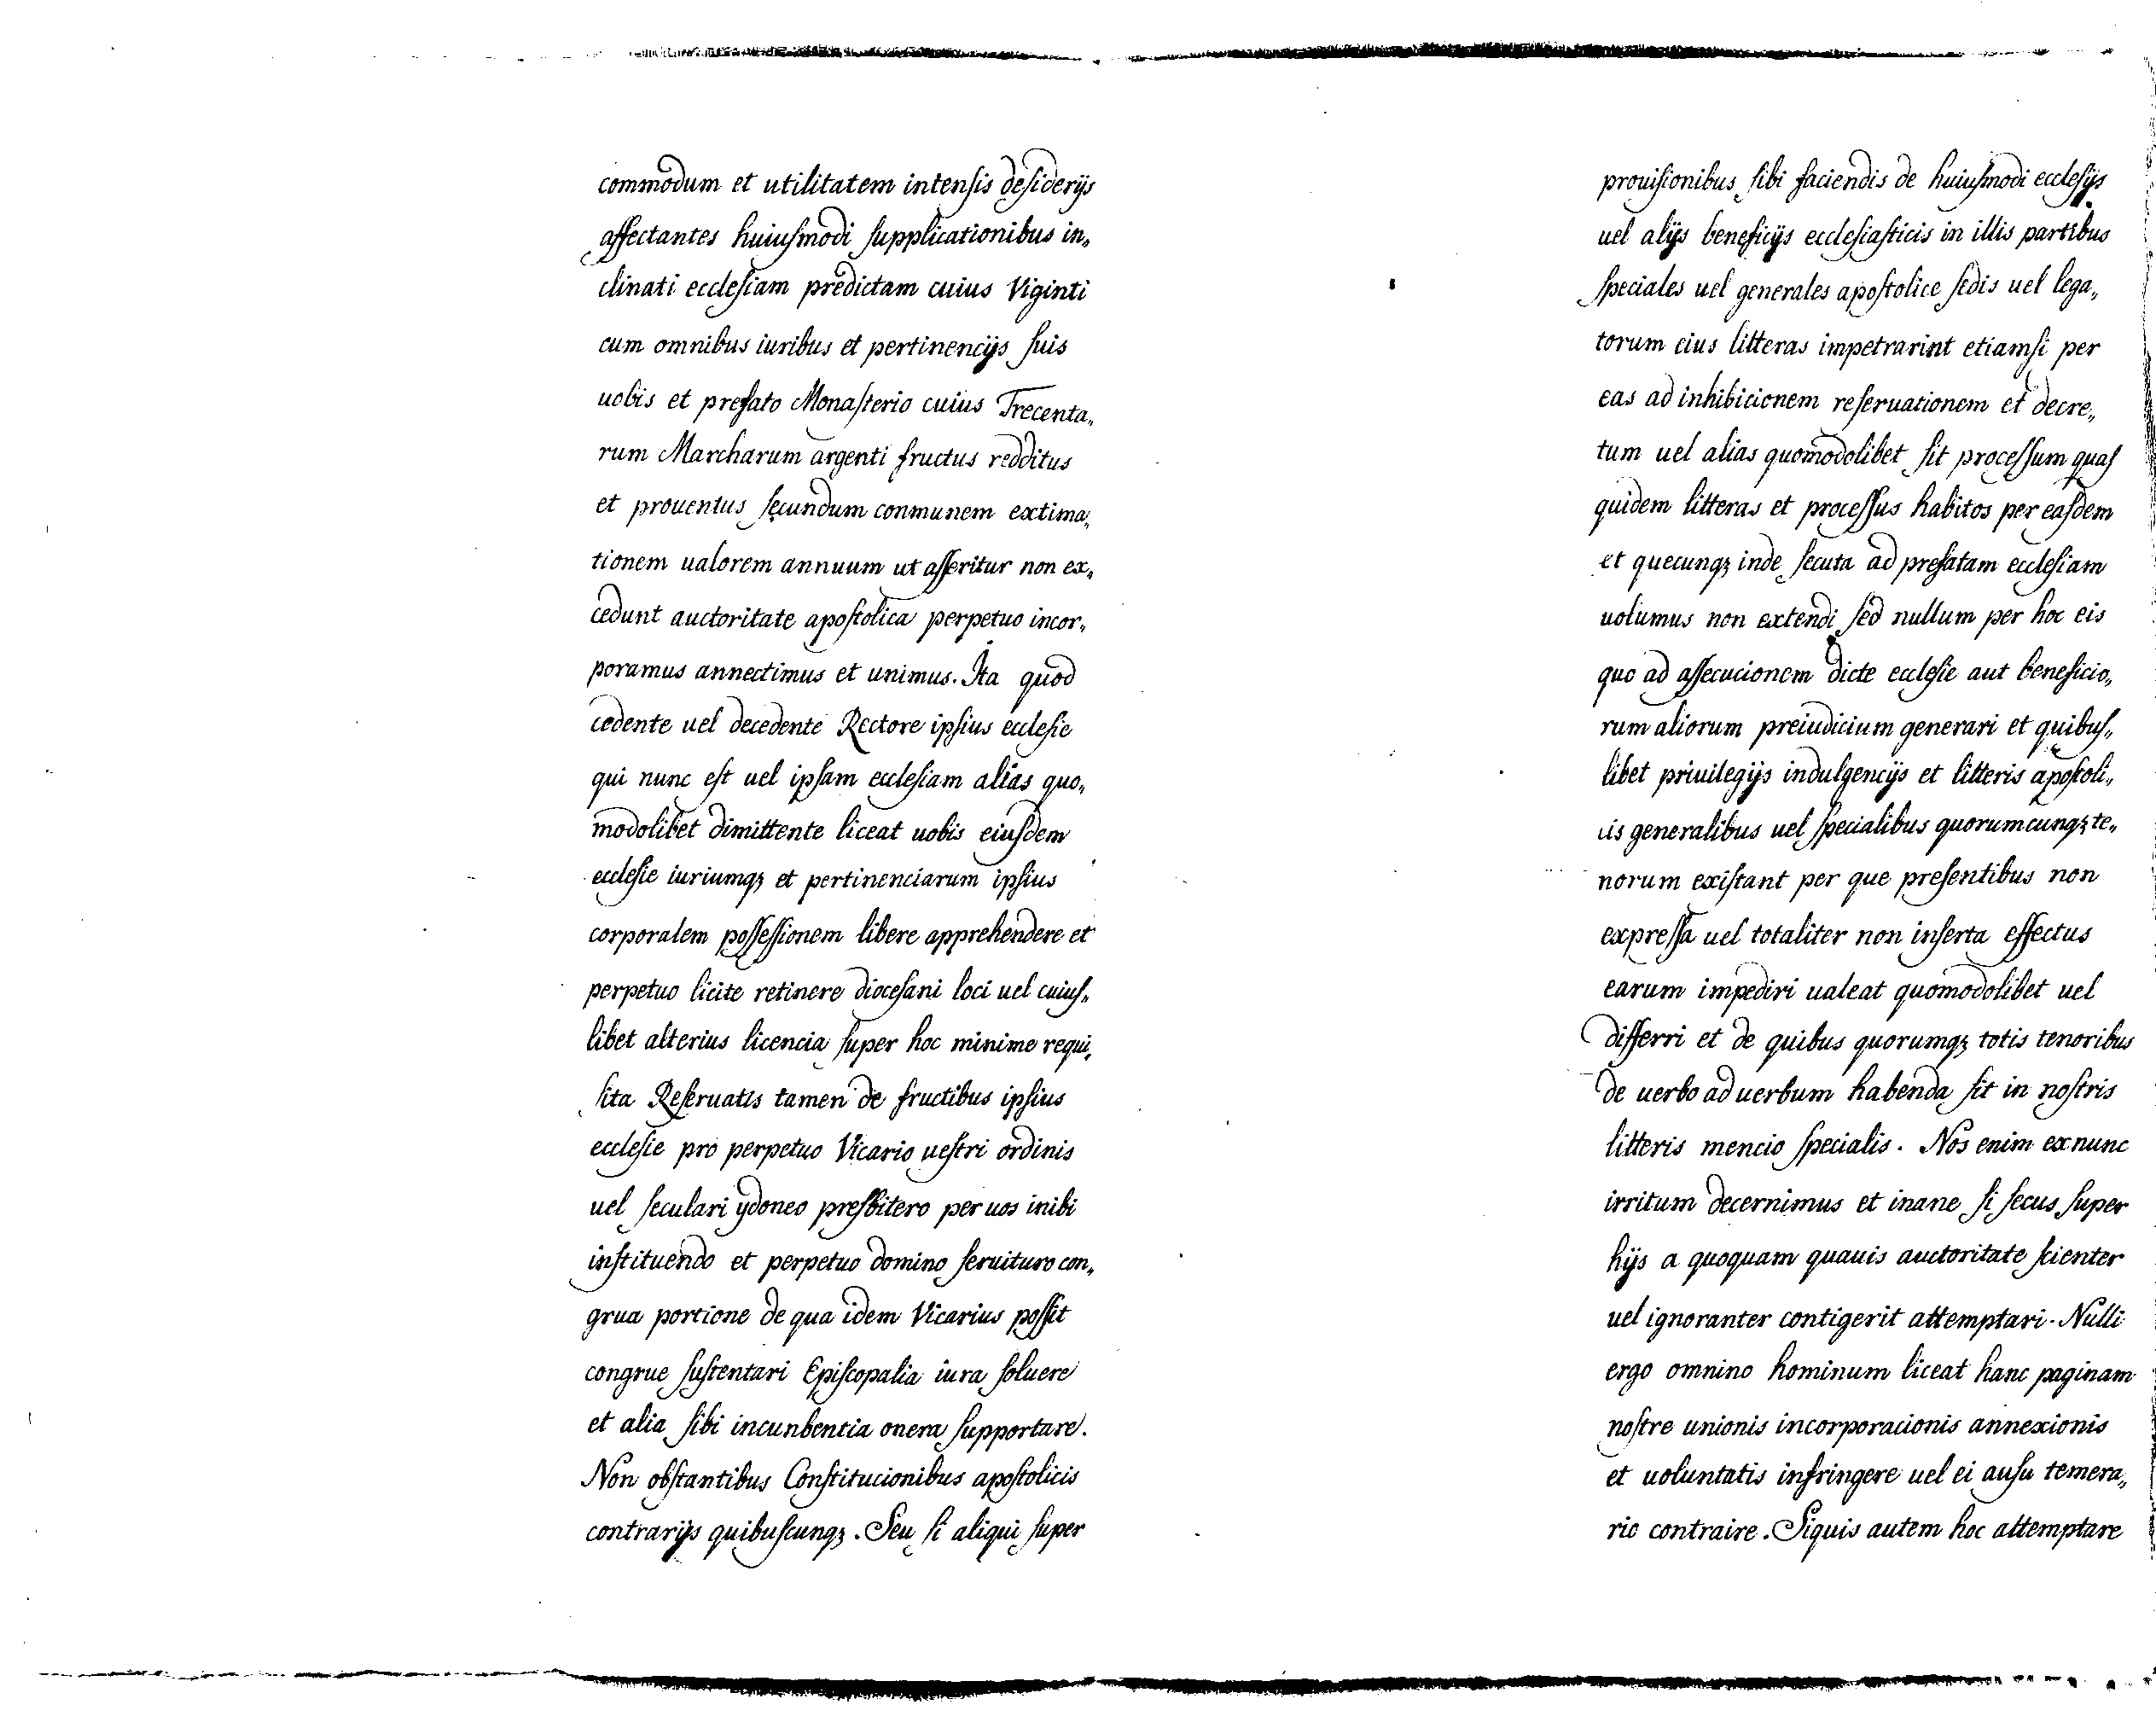 commodum et utilitatem intensis desiderijs
affectantes huiusmodi supplicationibus in„
clinati ecclesiam predictam cuius Viginti
cum omnibus iuribus et pertinencijs suis
uobis et prefato Monasterio cuius Trecenta„
rum Marcharum argenti fructus redditus
et prouentus secundum conmunem extima„
tionem ualorem annuum ut asseritur non ex„
cedunt auctoritate apostolica perpetuo incor„
poramus annectimus et unimus. Ita quod
cedente uel decedente Rectore ipsius ecclesie
qui nunc est uel ipsam ecclesiam alias quo„
modolibet dimittente liceat uobis eiusdem
ecclesie iuriumqꝫ et pertinenciarum ipsius
corporalem possessionem libere apprehendere et
perpetuo licite retinere diocesani loci uel cuius„
libet alterius licencia super hoc minime requi„
sita Reseruatis tamen de fructibus ipsius
ecclesie pro perpetuo Vicario uestri ordinis
uel seculari ydoneo presbitero per uos inibi
instituendo et perpetuo domino seruituro con„
grua portione de qua idem Vicarius possit
congrue sustentari Episcopalia iura soluere
et alia sibi incunbentia onera supportare.
Non obstantibus Constitucionibus apostolicis
contrarijs quibuscunqꝫ. Seu si aliqui super
prouisionibus sibi faciendis de huiusmodi ecclesijs
uel alijs beneficijs ecclesiasticis in illis partibus
speciales uel generales apostolice sedis uel lega„
torum eius litteras impetrarint etiamsi per
eas ad inhibicionem reseruationem et decre„
tum uel alias quomodolibet sit processum quas
quidem litteras et processus habitos per easdem
et quecunqꝫ inde secuta ad prefatam ecclesiam
uolumus non extendi sed nullum per hoc eis
quo ad assecucionem dicte ecclesie aut beneficio„
rum aliorum preiudicium generari et quibus„
libet priuilegijs indulgencijs et litteris apostoli„
cis generalibus uel specialibus quorumcunqꝫ te„
norum existant per que presentibus non
expressa uel totaliter non inserta effectus
earum impediri ualeat quomodolibet uel
differri et de quibus quorumqꝫ totis tenoribus
de uerbo ad uerbum habenda sit in nostris
litteris mencio specialis. Nos enim exnunc
irritum decernimus et inane si secus super
hijs a quoquam quauis auctoritate scienter
uel ignoranter contigerit attemptari. Nulli
ergo omnino hominum liceat hanc paginam
nostre unionis incorporacionis annexionis
et uoluntatis infringere uel ei ausu temera„
rio contraire. Siquis autem hoc attemptare